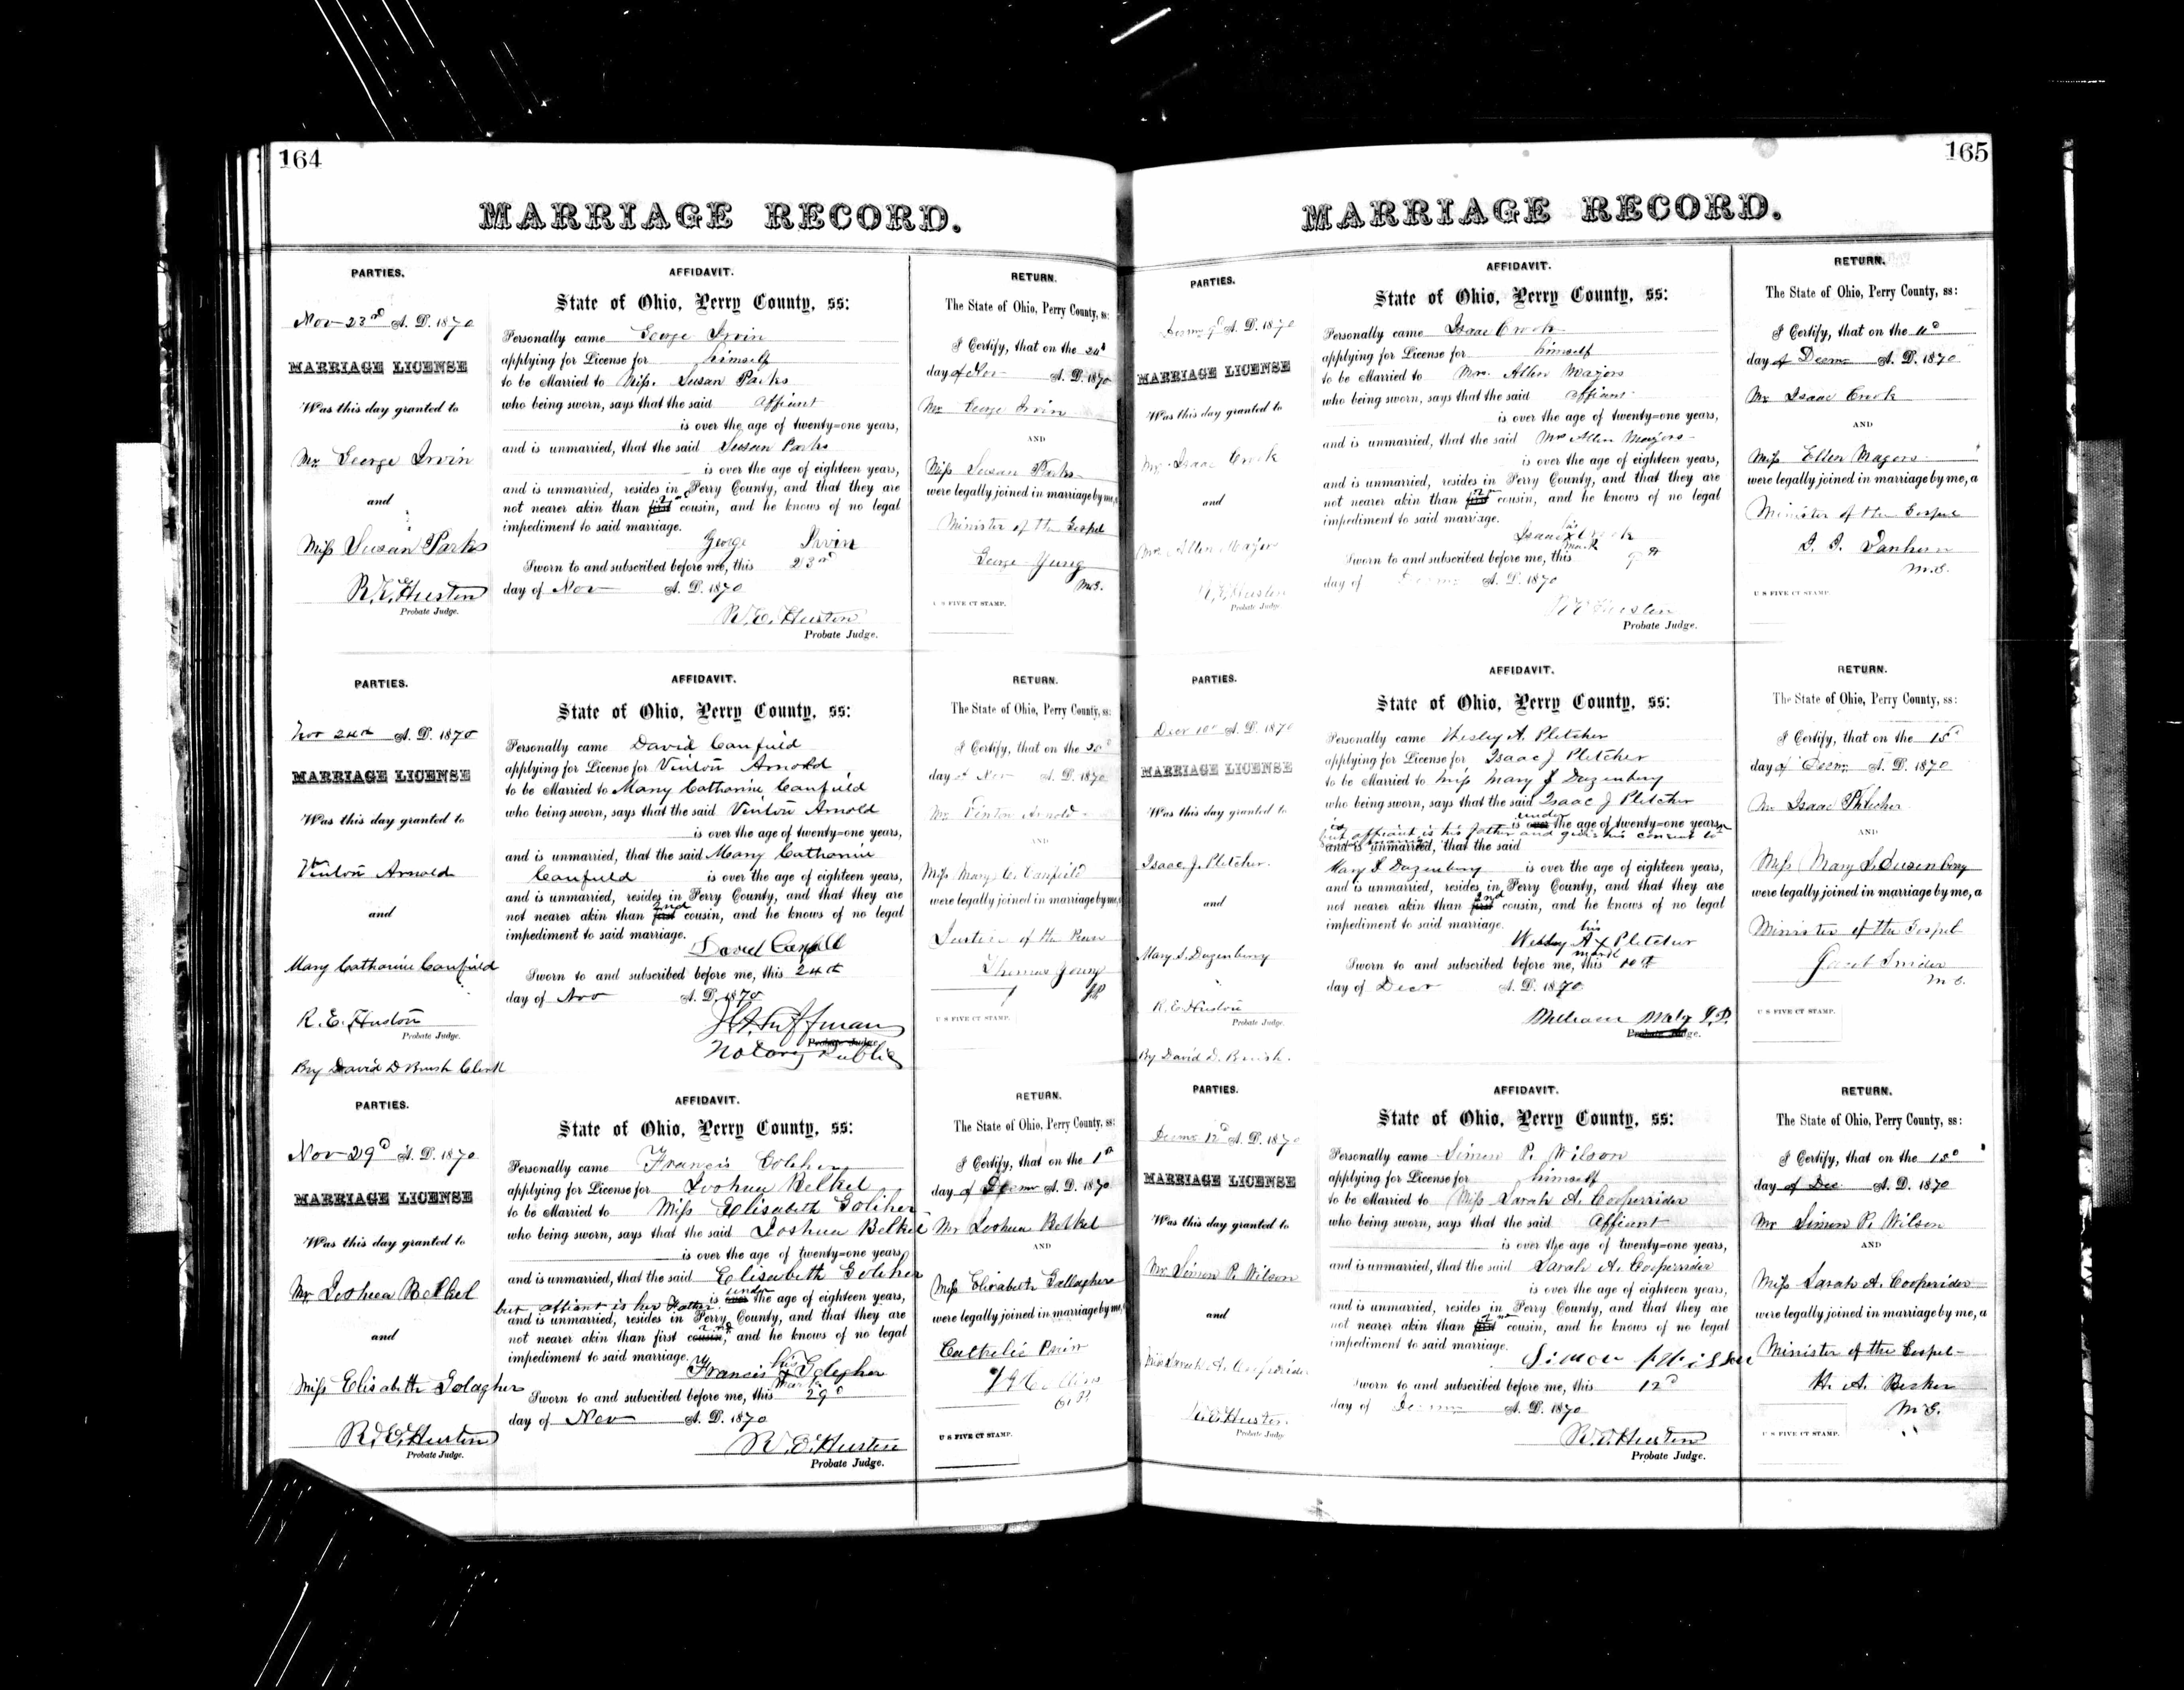 164
MARRIAGE RECORD.
PARTIES.
Nov 23rd A. D. 1870
MARRIAGE LICENSE
Was this day granted to
Mr George Irvin
and
Miss Susan Parks
R. E. Huston
Probate Judge.
AFFIDAVIT.
State of Ohio, Perry County, ss:
Personally came George Irvin
applying for License for himself
to be Married to Miss. Susan Parks
who being sworn, says that the said affiant
is over the age of twenty=one years,
and is unmarried, that the said Susan Parks
is over the age of eighteen years,
and is unmarried, resides in Perry County, and that they are
not nearer akin than first cousin, and he knows of no legal
impediment to said marriage.
George Irvin
Sworn to and subscribed before me, this 23rd
day of Nov A. D. 1870
R. E. Huston
Probate Judge.
RETURN.
The State of Ohio, Perry County, ss:
I Certify, that on the 24d
day of Nov A. D. 1870
Mr George Irvin
AND
Miss Susan Parks
were legally joined in marriage by me, a
Minister of the Gospel
George Yung
M.G.
U S FIVE CT STAMP.
PARTIES.
Nov 24th A. D. 1870
MARRIAGE LICENSE
Was this day granted to
Vinton Arnold
and
Mary Catharine Canfield
R. E. Huston
Probate Judge.
By David D Brush Clerk
AFFIDAVIT.
State of Ohio, Perry County, ss:
Personally came David Canfield
applying for License for Vinton Arnold
to be Married to Mary Catharine Canfield
who being sworn, says that the said Vinton Arnold
is over the age of twenty=one years,
and is unmarried, that the said Mary Catharine
Canfield is over the age of eighteen years,
and is unmarried, resides in Perry County, and that they are
2nd
not nearer akin than first cousin, and he knows of no legal
impediment to said marriage.
David
Sworn to and subscribed before me, this 24th
day of Nov A. D. 1870
Huffman
Probate Judge
Notary Public
RETURN.
The State of Ohio, Perry County, ss:
I Certify, that on the
day of Nov A. D. 1870
Mr Vinton Arnold
AND
Miss Mary C. Canfield
were legally joined in marriage by me, a
Justice of the Peace
Thomas Young
JP
U S FIVE CT STAMP.
PARTIES.
Nov 29d A. D. 1870
MARRIAGE LICENSE
Was this day granted to
Mr Joshua Belkel
and
Miss Elisabeth Golagher
R. E. Huston
Probate Judge.
AFFIDAVIT.
State of Ohio, Perry County, ss:
Personally came Francis Goliher
applying for License for Joshua Belkel
to be Married to Miss Elisabeth Goliher
who being sworn, says that the said Joshua Belkel
is over the age of twenty=one years,
and is unmarried, that the said Elisabeth Goliher
under
but affiant is her Father is over the age of eighteen years,
and is unmarried, resides in Perry County, and that they are
not nearer akin than first cousin, and he knows of no legal
impediment to said marriage.
his
Francis x Golegher
mark
Sworn to and subscribed before me, this 29d
day of Nov A. D. 1870
R. E. Huston
Probate Judge.
RETURN.
The State of Ohio, Perry County, ss:
I Certify, that on the 1st
day of Decm A. D. 1870
Mr Joshua Belkel
AND
Miss Elizabeth Gallagher
were legally joined in marriage by me, a
Catholic
U S FIVE CT STAMP.
165
MARRIAGE RECORD.
PARTIES.
Decm 9d A. D. 1870
MARRIAGE LICENSE
Was this day granted to
Mr Isaac Crook
and
Mrs Allen Majors
R. E. Huston
Probate Judge
AFFIDAVIT.
State of Ohio, Perry County, ss:
Personally came Isaac Crook
applying for License for himself
to be Married to Mrs. Allen Majors
who being sworn, says that the said affiant
is over the age of twenty=one years,
and is unmarried, that the said Mrs Allen Majors
is over the age of eighteen years,
and is unmarried, resides in Perry County, and that they are
not nearer akin than first cousin, and he knows of no legal
impediment to said marriage.
his
Isaac x Crook
mark
Sworn to and subscribed before me, this 9th
day of Decm A. D. 1870
R E Huston
Probate Judge.
RETURN.
The State of Ohio, Perry County, ss:
I Certify, that on the 11d
day of Decm A. D. 1870
Mr Isaac Crook
AND
Miss Ellen Magers
were legally joined in marriage by me, a
Minister of the Gospel
M.G.
U S FIVE CT STAMP.
PARTIES.
Decr 10th A. D. 1870
MARRIAGE LICENSE
Was this day granted to
Isaac J. Pletcher.
and
Mary S. Dazenbury
R. E. Huston
Probate Judge.
By David D. Brush.
AFFIDAVIT.
State of Ohio, Perry County, ss:
Personally came Wesley A. Pletcher
applying for License for Isaac J Pletcher
to be Married to Miss Mary S Dazenbury
who being sworn, says that the said Isaac J Pletcher
under
is over the age of twenty=one years,
but affiant is his father and gives his consent to
and is unmarried, that the said
Mary S Dazenbury is over the age of eighteen years,
and is unmarried, resides in Perry County, and that they are
2nd
not nearer akin than first cousin, and he knows of no legal
impediment to said marriage.
his
Wesley A x Pletcher
mark
Sworn to and subscribed before me, this 10th
day of Decr A. D. 1870
William Maly J.P.
Probate Judge.
RETURN.
The State of Ohio, Perry County, ss:
I Certify, that on the 15d
day of Decm. A. D. 1870
Mr Isaac Pletcher
AND
Miss Mary S Dusenbery
were legally joined in marriage by me, a
Minister of the Gospel
Jacob Snider
M G.
U S FIVE CT STAMP.
PARTIES.
Decm 12d A. D. 1870
MARRIAGE LICENSE
Was this day granted to
Mr Simon P. Wilson
and
Miss Sarah A. Cooperrider
R. E. Huston.
Probate Judge
AFFIDAVIT.
State of Ohio, Perry County, ss:
Personally came Simon P. Wilson
applying for License for himself
to be Married to Miss Sarah A. Cooperrider
who being sworn, says that the said Affiant
is over the age of twenty=one years,
and is unmarried, that the said Sarah A. Cooperrider
is over the age of eighteen years,
and is unmarried, resides in Perry County, and that they are
not nearer akin than first cousin, and he knows of no legal
impediment to said marriage.
Simon P Wilson
Sworn to and subscribed before me, this 12d
day of Decm A. D. 1870
R. E. Huston
Probate Judge.
RETURN.
The State of Ohio, Perry County, ss:
I Certify, that on the 15d
day of Dec A. D. 1870
Mr Simon P. Wilson
AND
Miss Sarah A. Cooperider
were legally joined in marriage by me, a
Minister of the Gospel
H. A. Becker
M G.
U S FIVE CT STAMP.